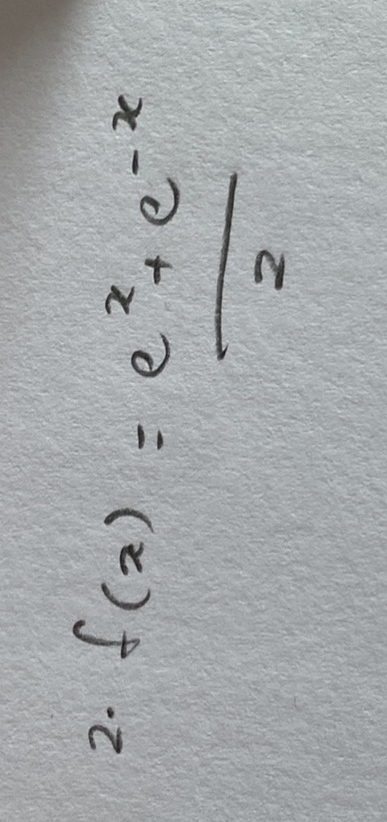 2. f(x) = e^x + e^-x
2